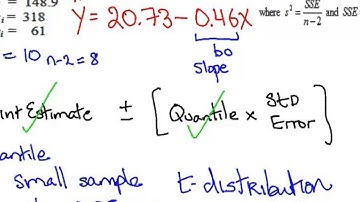 = 148.9
i = 318
i = 61
Y = 20.73 - 0.46x
where s² = SSE / n-2 and SSE
b0
slope
= 10 n-2 = 8
int Estimate ± [Quantile x STD Error]
antile
small sample t-distribution